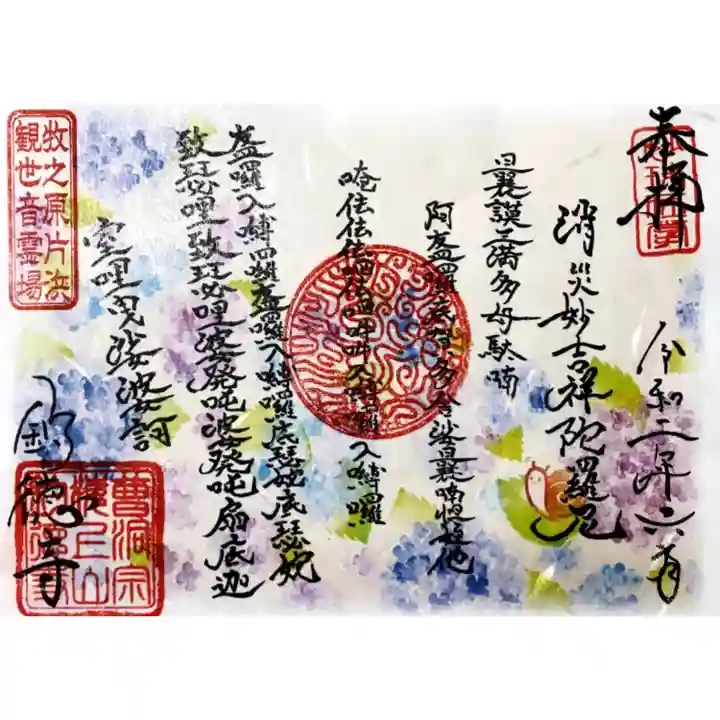 奉拝
令和二年六月
消災妙吉祥陀羅尼
曩謨三満多母駄喃
阿盋羅底賀多舎娑曩喃怛姪他
唵佉佉佉呬佉呬吽吽入嚩囉入嚩囉
盋囉入嚩囉盋囉入嚩囉底瑟妮底瑟妮
致瑟哩致瑟哩娑発吒娑発吒扇底迦
室哩曳娑婆訶
牧之原片浜
観世音霊場
徳寺
曹洞宗